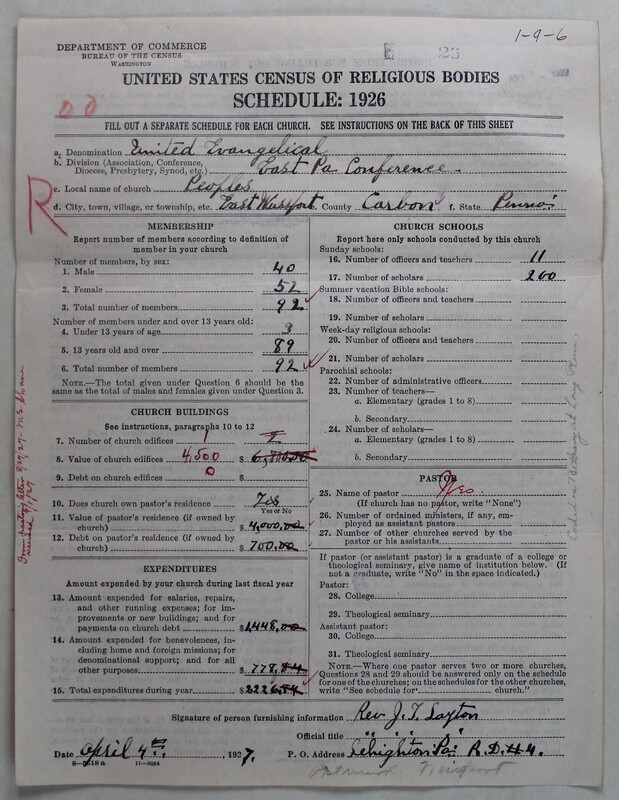 1-9-6
DEPARTMENT OF COMMERCE
BUREAU OF THE CENSUS
WASHINGTON
E 23
UNITED STATES CENSUS OF RELIGIOUS BODIES
SCHEDULE: 1926
FILL OUT A SEPARATE SCHEDULE FOR EACH CHURCH. SEE INSTRUCTIONS ON THE BACK OF THIS SHEET
a. Denomination United Evangelical
b. Division (Association, Conference, Diocese, Presbytery, Synod, etc.) East Pa Conference
c. Local name of church Peoples
R
d. City, town, village, or township, etc. East Weissport County Carbon f. State Penna
MEMBERSHIP
Report number of members according to definition of
member in your church
Number of members, by sex:
1. Male 40
2. Female 52
3. Total number of members 92
Number of members under and over 13 years old:
4. Under 13 years of age 3
5. 13 years old and over 89
6. Total number of members 92
NOTE.—The total given under Question 6 should be the
same as the total of males and females given under Question 3.
CHURCH BUILDINGS
See instructions, paragraphs 10 to 12
7. Number of church edifices 1 2
8. Value of church edifices 4,500 $
9. Debt on church edifices 0 $
10. Does church own pastor's residence Yes
Yes or No
11. Value of pastor's residence (if owned by
church) $4,000.00
12. Debt on pastor's residence (if owned by
church) $700.00
EXPENDITURES
Amount expended by your church during last fiscal year
13. Amount expended for salaries, repairs,
and other running expenses; for im-
provements or new buildings; and for
payments on church debt $1448.00
14. Amount expended for benevolences, in-
cluding home and foreign missions; for
denominational support; and for all
other purposes $778.84
15. Total expenditures during year $2226.84
CHURCH SCHOOLS
Report here only schools conducted by this church
Sunday schools:
16. Number of officers and teachers 11
17. Number of scholars 200
Summer vacation Bible schools:
18. Number of officers and teachers
19. Number of scholars
Week-day religious schools:
20. Number of officers and teachers
21. Number of scholars
Parochial schools:
22. Number of administrative officers
23. Number of teachers—
a. Elementary (grades 1 to 8)
b. Secondary
24. Number of scholars—
a. Elementary (grades 1 to 8)
b. Secondary
PASTOR
25. Name of pastor Yes
(If church has no pastor, write "None")
26. Number of ordained ministers, if any, em-
ployed as assistant pastors
27. Number of other churches served by the
pastor or his assistants
If pastor (or assistant pastor) is a graduate of a college or
theological seminary, give name of institution below. (If
not a graduate, write "No" in the space indicated.)
Pastor:
28. College
29. Theological seminary
Assistant pastor:
30. College
31. Theological seminary
NOTE.—Where one pastor serves two or more churches,
Questions 28 and 29 should be answered only on the schedule
for one of the churches; on the schedules for the other churches,
write "See schedule for church."
Signature of person furnishing information Rev J. T. Laxton
Official title " " "
Date April 4th, 1927. P. O. Address Lehighton Pa. R.D.#4.
11—9054